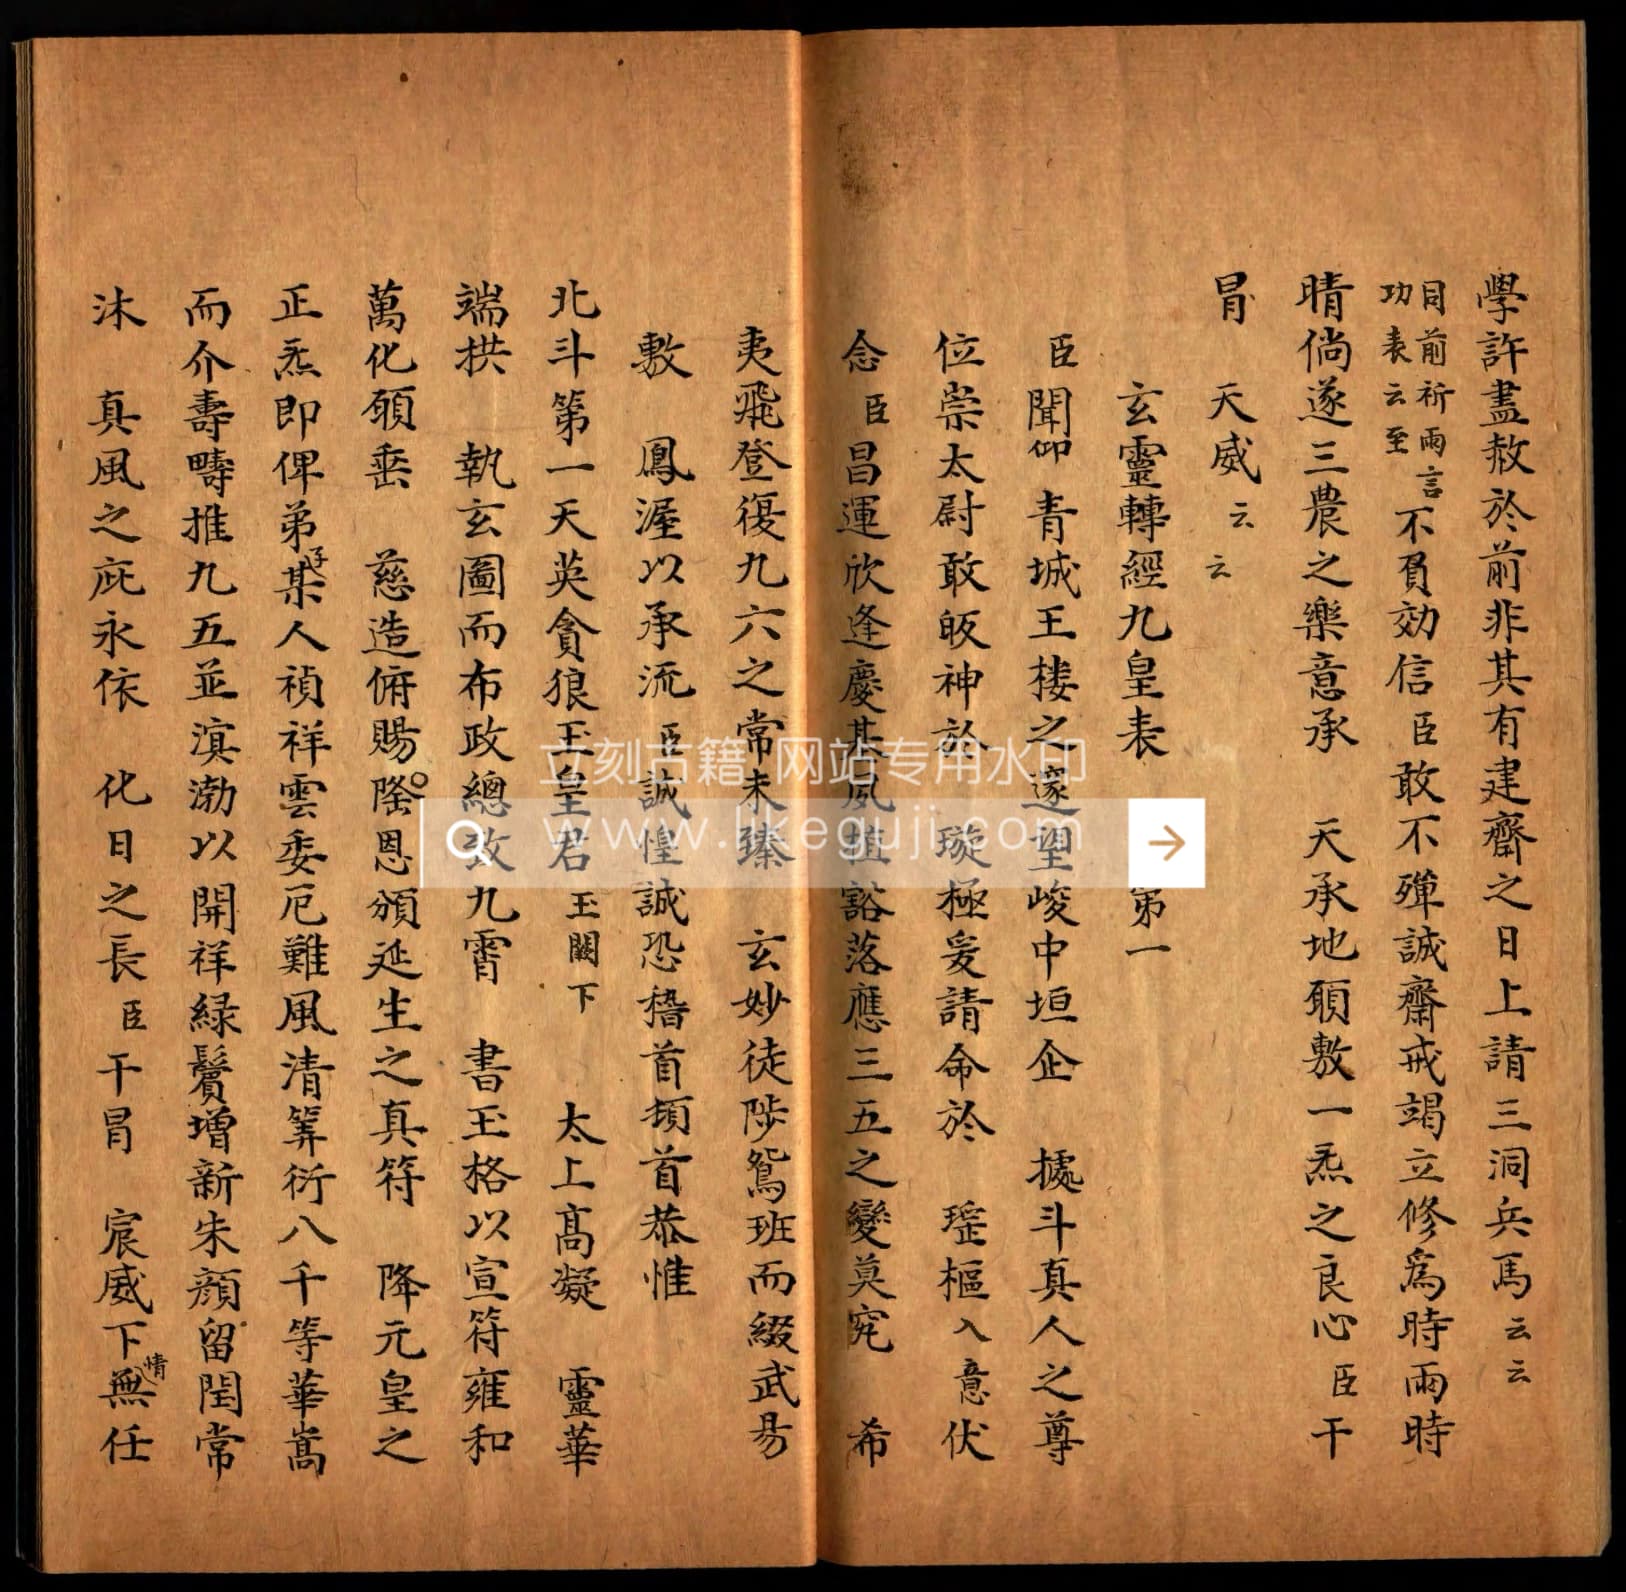 學許盡赦於前非其有建齋之日上請三洞兵馬云云
同前祈雨言功表云至不負効信臣敢不殫誠齋戒竭立修爲時雨時
晴倘遂三農之樂意承 天承地願敷一炁之良心臣干
冒 天威云云
玄靈轉經九皇表 第一
臣聞仰 青城王楼之邃望峻中垣企 據斗真人之尊
位崇太尉敢皈神於 璇極爰請命於 瑤樞入意伏
念臣昌運欣逢慶基夙植豁落應三五之變莫究 希
夷飛登復九六之常未臻 玄妙徒陟鴛班而綴武易
敷 鳳渥以承流臣誠惶誠恐稽首頓首恭惟
北斗第一天英貪狼玉皇君玉闕下 太上高凝 靈華
端拱 執玄圖而布政總攷九霄 書玉格以宣符雍和
萬化願垂 慈造俯賜隆恩頒延生之真符 降元皇之
正炁即俾弟子某人禎祥雲委厄難風清筭衍八千等華嵩
而介壽疇推九五並溟渤以開祥緑鬢增新朱顔留閏常
沐 真風之庇永依 化日之長臣干冒 宸威下情無任
立刻古籍 网站专用水印
www.likeguji.com